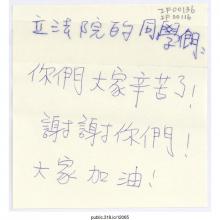 立法院的同學們:
你們大家辛苦了!
謝謝你們!
大家加油!
public.318.io/12005